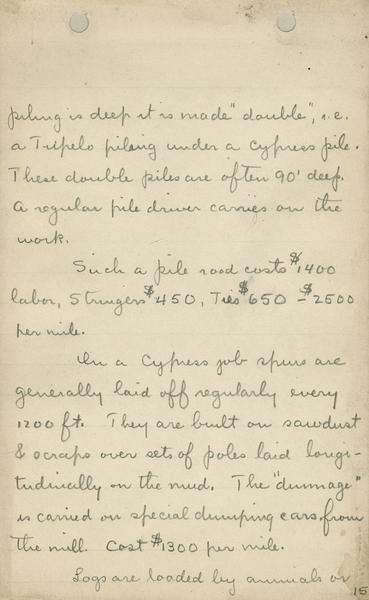 piling is deep it is made "double", i.e.
a Tupelo piling under a cypress pile.
These double piles are often 90' deep.
A regular pile driver carries on the
work.
Such a pile road costs $1400
labor, Stringers $450, Ties $650 - $2500
per mile.
In a Cypress job spurs are
generally laid off regularly every
1200 ft. They are built on sawdust
& scraps over sets of poles laid longi-
tudinally on the mud. The "dunnage"
is carried on special dumping cars from
the mill. Cost $1300 per mile.
Logs are loaded by animals or
15